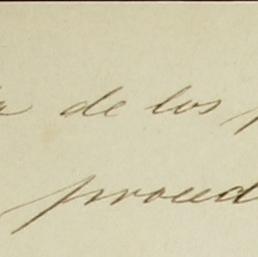 a de los p
proced